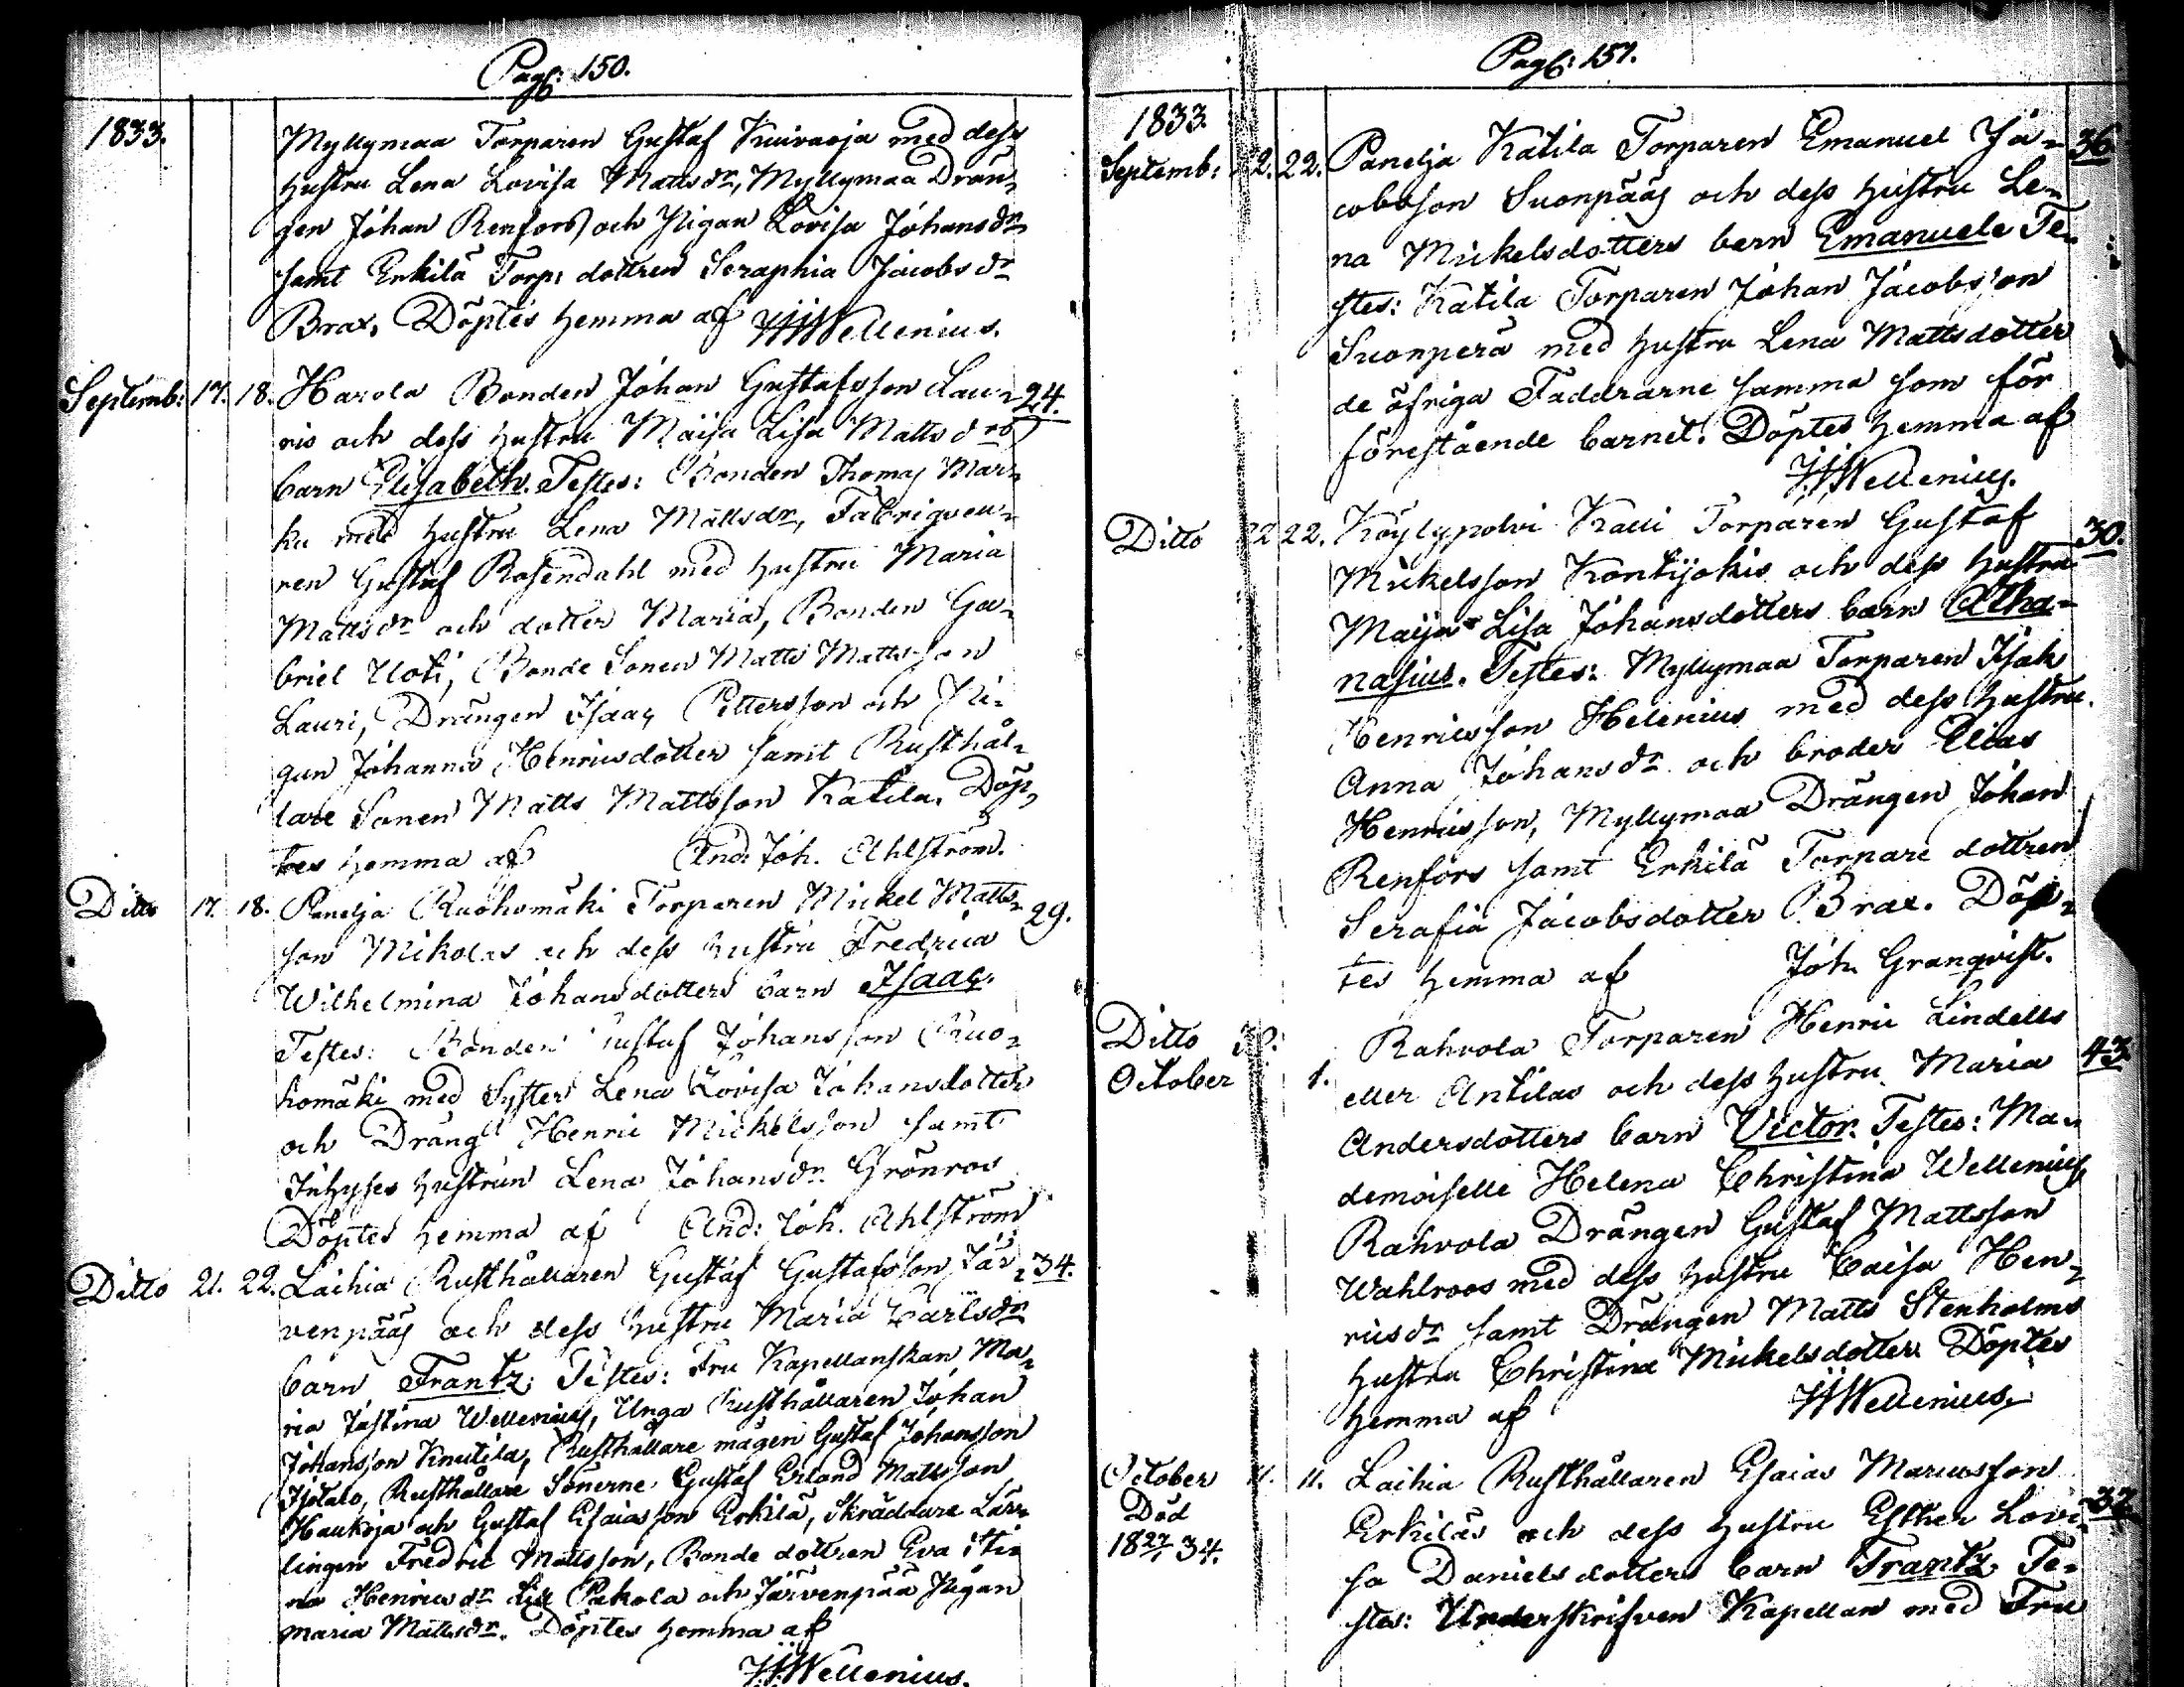 Pag: 150.
1833.
Myllymaa Torparen Gustaf Kuivaoja med dess
hustru Lena Lovisa Matts dr, Myllymaa Drän-
gen Johan Renfors och Pigan Lovisa Johans dr
samt Erkilä Torp: dottren Seraphia Jacobs dr
Brax, Döptes hemma af JWWellenius.
Septemb: 17. 18. Harola Bonden Johan Gustafsson Lau- 24.
ris och dess hustru Maija Lisa Matts drs
barn Elisabeth. Testes: Bonden Thomas Mar-
ku med hustru Lena Mattsdr, Fabriqveu-
ren Gustaf Rosendahl med hustru Maria
Mattsdr och dotter Maria, Bonden Ga-
briel Uoti, Bonde Sonen Matts Mattsson
Lauri, Drängen Isaac Pettersson och Pi-
gan Johanna Henricsdotter samt Rusthål-
lare Sonen Matts Mattsson Katila. Döp-
tes hemma af And: Joh. Ahlström.
Ditto 17. 18. Panelja Ruohomäki Torparen Mickel Matts- 29.
son Mikolas och dess hustru Fredrica
Wilhelmina Johansdotters barn Isaac.
Testes: Bonden Gustaf Johansson Ruo-
homäki med Syster Lena Lovisa Johansdotter
och Dräng Henric Mickelsson samt
Inhyses hustrun Lena Johansdr Grönroos
Döptes hemma af And: Joh. Ahlström
Ditto 21. 22. Laihia Rusthållaren Gustaf Gustafsson Jär- 34.
venpääs och dess hustru Maria Carlsdr
barn Frantz. Testes: Fru Kapellanskan Ma-
ria Justina Wellenius, Unga Rusthållaren Johan
Johansson Knutila, Rusthållare mågen Gustaf Johansson
Isotalo, Rusthållare Sönerne Gustaf Erland Mattsson
Haukoja och Gustaf Esaiasson Erkilä, Skräddare Lär-
lingen Fredric Mattsson, Bonde dottren Eva Sti-
na Henricsdr Pakola och Järvenpää Pigan
Maria Mattsdr. Döptes hemma af
JWWellenius.
Pag: 151.
1833.
Septemb: 22. 22. Panelja Katila Torparen Emanuel Ja- 36
cobsson Suonpääs och dess hustru Le-
na Mickelsdotters barn Emanuel. Te-
stes: Katila Torparen Johan Jacobsson
Suonperä med hustru Lena Mattsdotter
de öfriga Faddrarne samma som för
förestående barnet. Döptes hemma af
JWWellenius.
Ditto 22 22. Köylypolvi Kalli Torparen Gustaf 30.
Mickelsson Kontijokis och dess hustru
Maija Lisa Johansdotters barn Atha-
nasius. Testes: Myllymaa Torparen Isak
Henricsson Helenius med dess hustru
Anna Johansdr och broder Elias
Henricsson, Myllymaa Drängen Johan
Renfors samt Erkilä Torpare dottren
Serafia Jacobsdotter Brax. Döp-
tes hemma af Joh. Granqvist.
Ditto 30. Rahvola Torparen Henric Lindells
October 1. eller Antilas och dess hustru Maria 43
Andersdotters barn Victor. Testes: Ma-
demoiselle Helena Christina Wellenius
Rahvola Drängen Gustaf Mattsson
Wahlroos med dess hustru Caisa Hen-
ricsdr samt Drängen Matts Stenholms
hustru Christina Mickelsdotter Döptes
hemma af JWWellenius.
October 11. 11. Laihia Rusthållaren Esaias Marcusson
Död Erkiläs och dess hustru Esther Lovi- 32
18 27/1 34. sa Danielsdotters barn Frantz Te-
stes: Underskrifven Kapellan med Fru